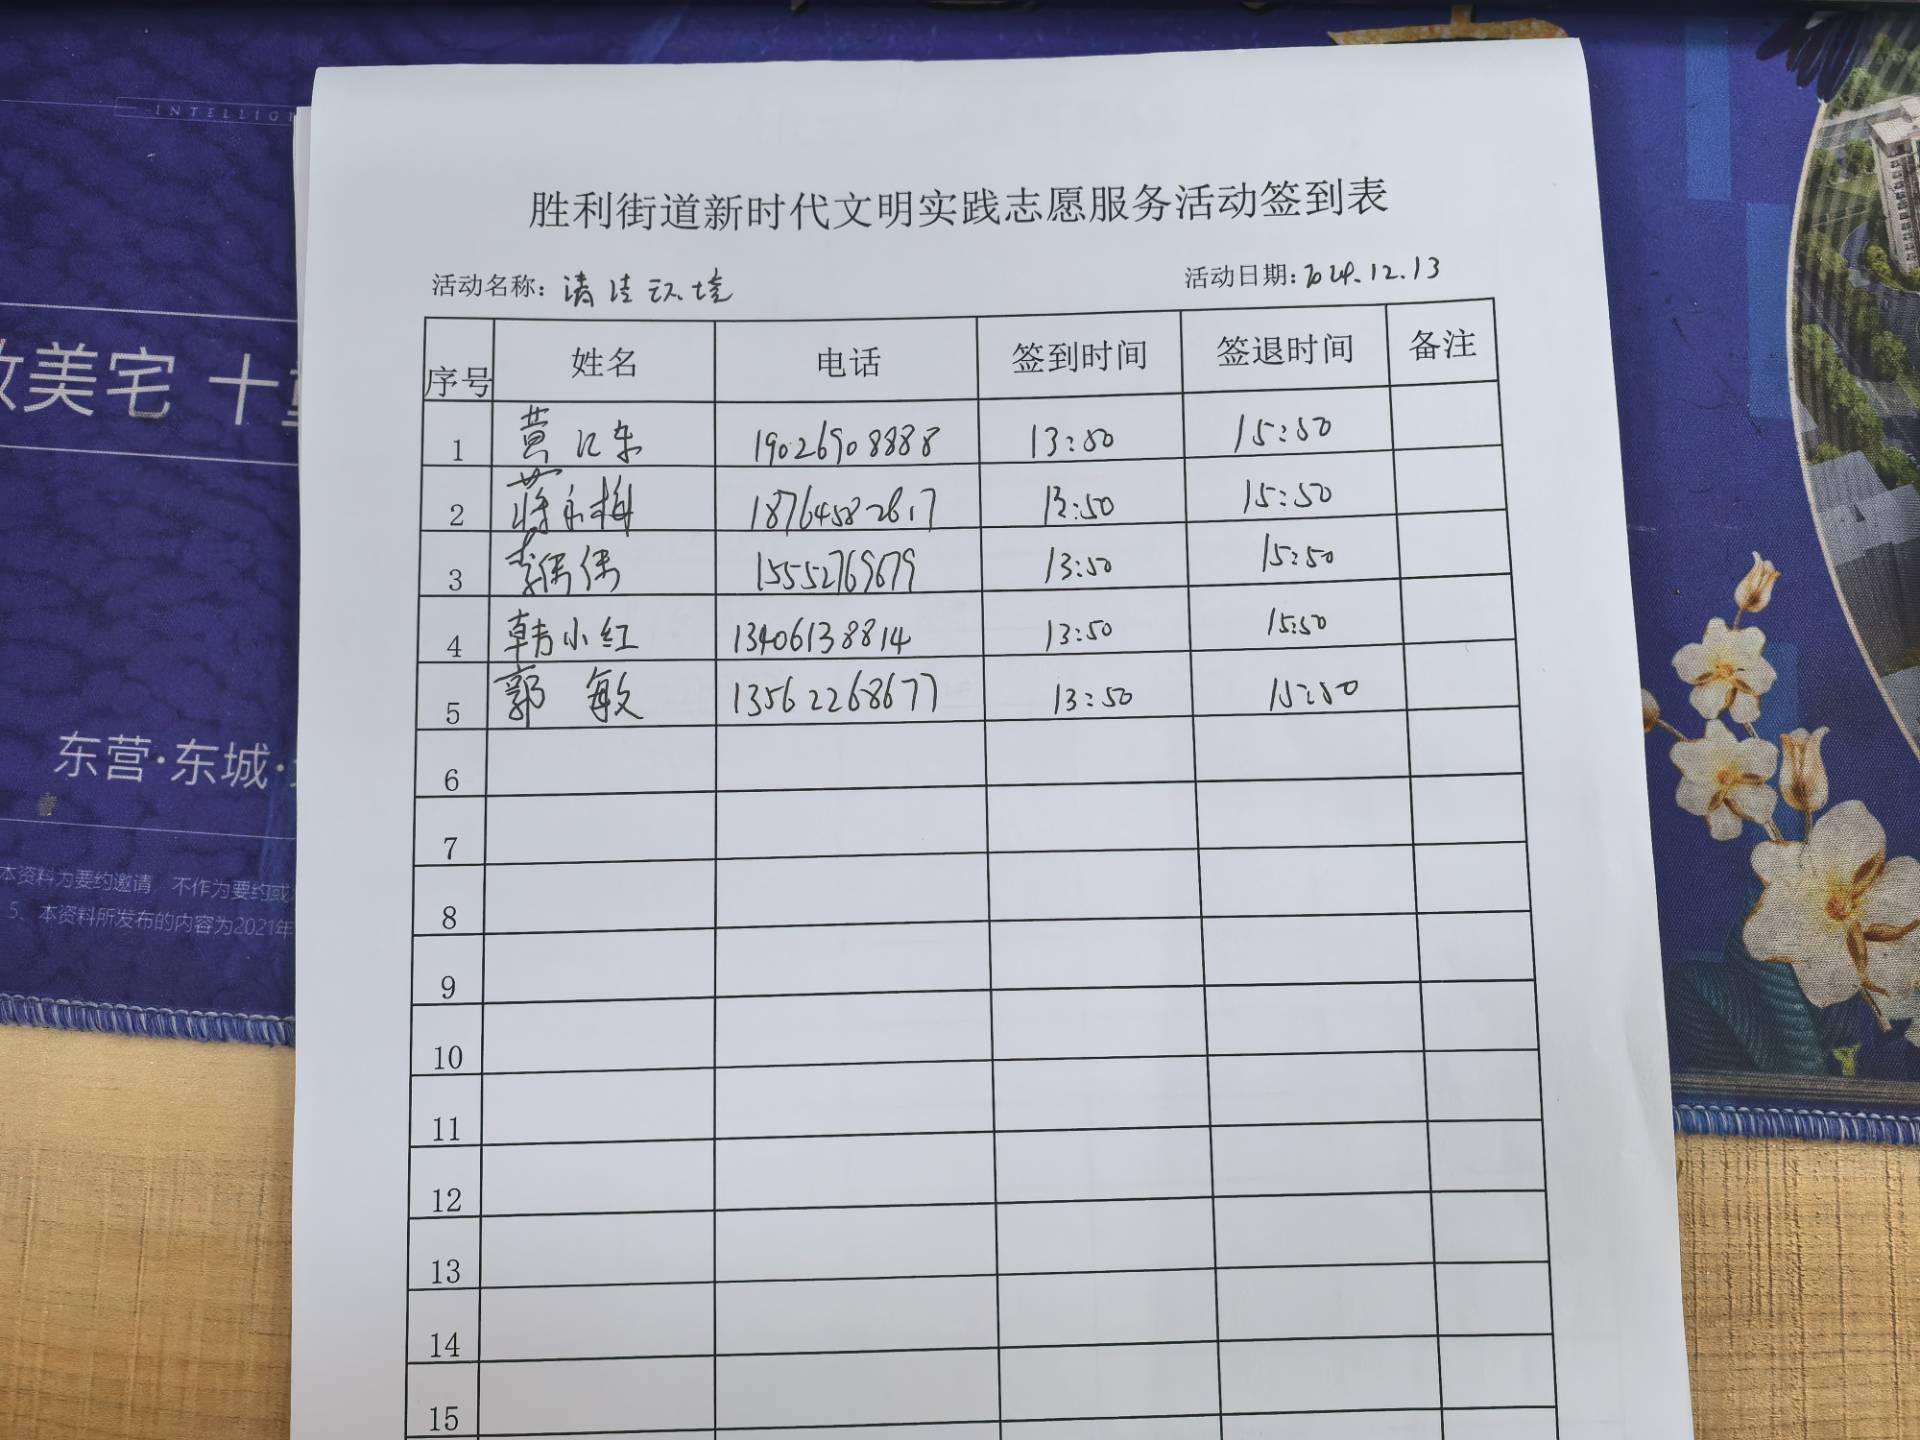 INTELLIG
美宅 十
东营·东城·
本资料为要约邀请,不作为要约或
5、本资料所发布的内容为2021年
胜利街道新时代文明实践志愿服务活动签到表
活动名称:清洁环境 活动日期:2024.12.13
序号 姓名 电话 签到时间 签退时间 备注
1 黄江东 19026908888 13:50 15:50
2 蒋永梅 18764582617 13:50 15:50
3 李偶偶 15552769679 13:50 15:50
4 韩小红 13406138814 13:50 15:50
5 郭敏 13562268677 13:50 15:50
6
7
8
9
10
11
12
13
14
15